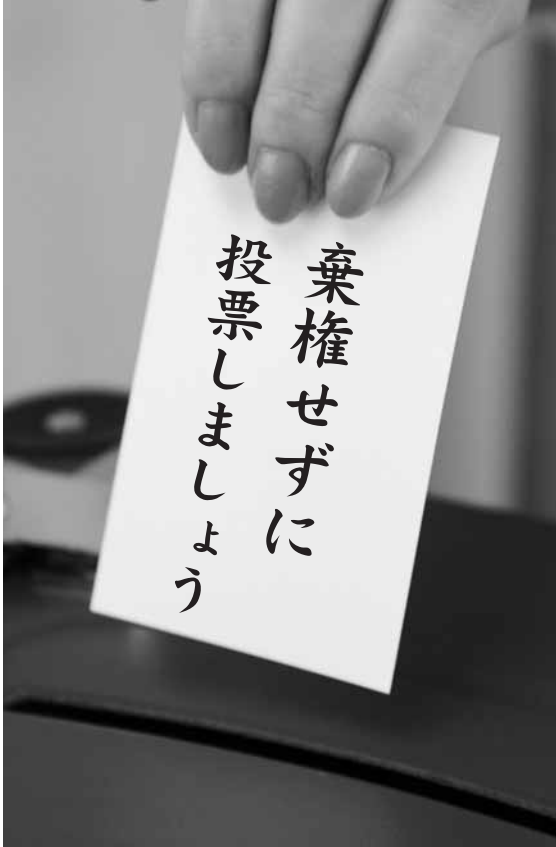 棄権せずに
投票しましょう